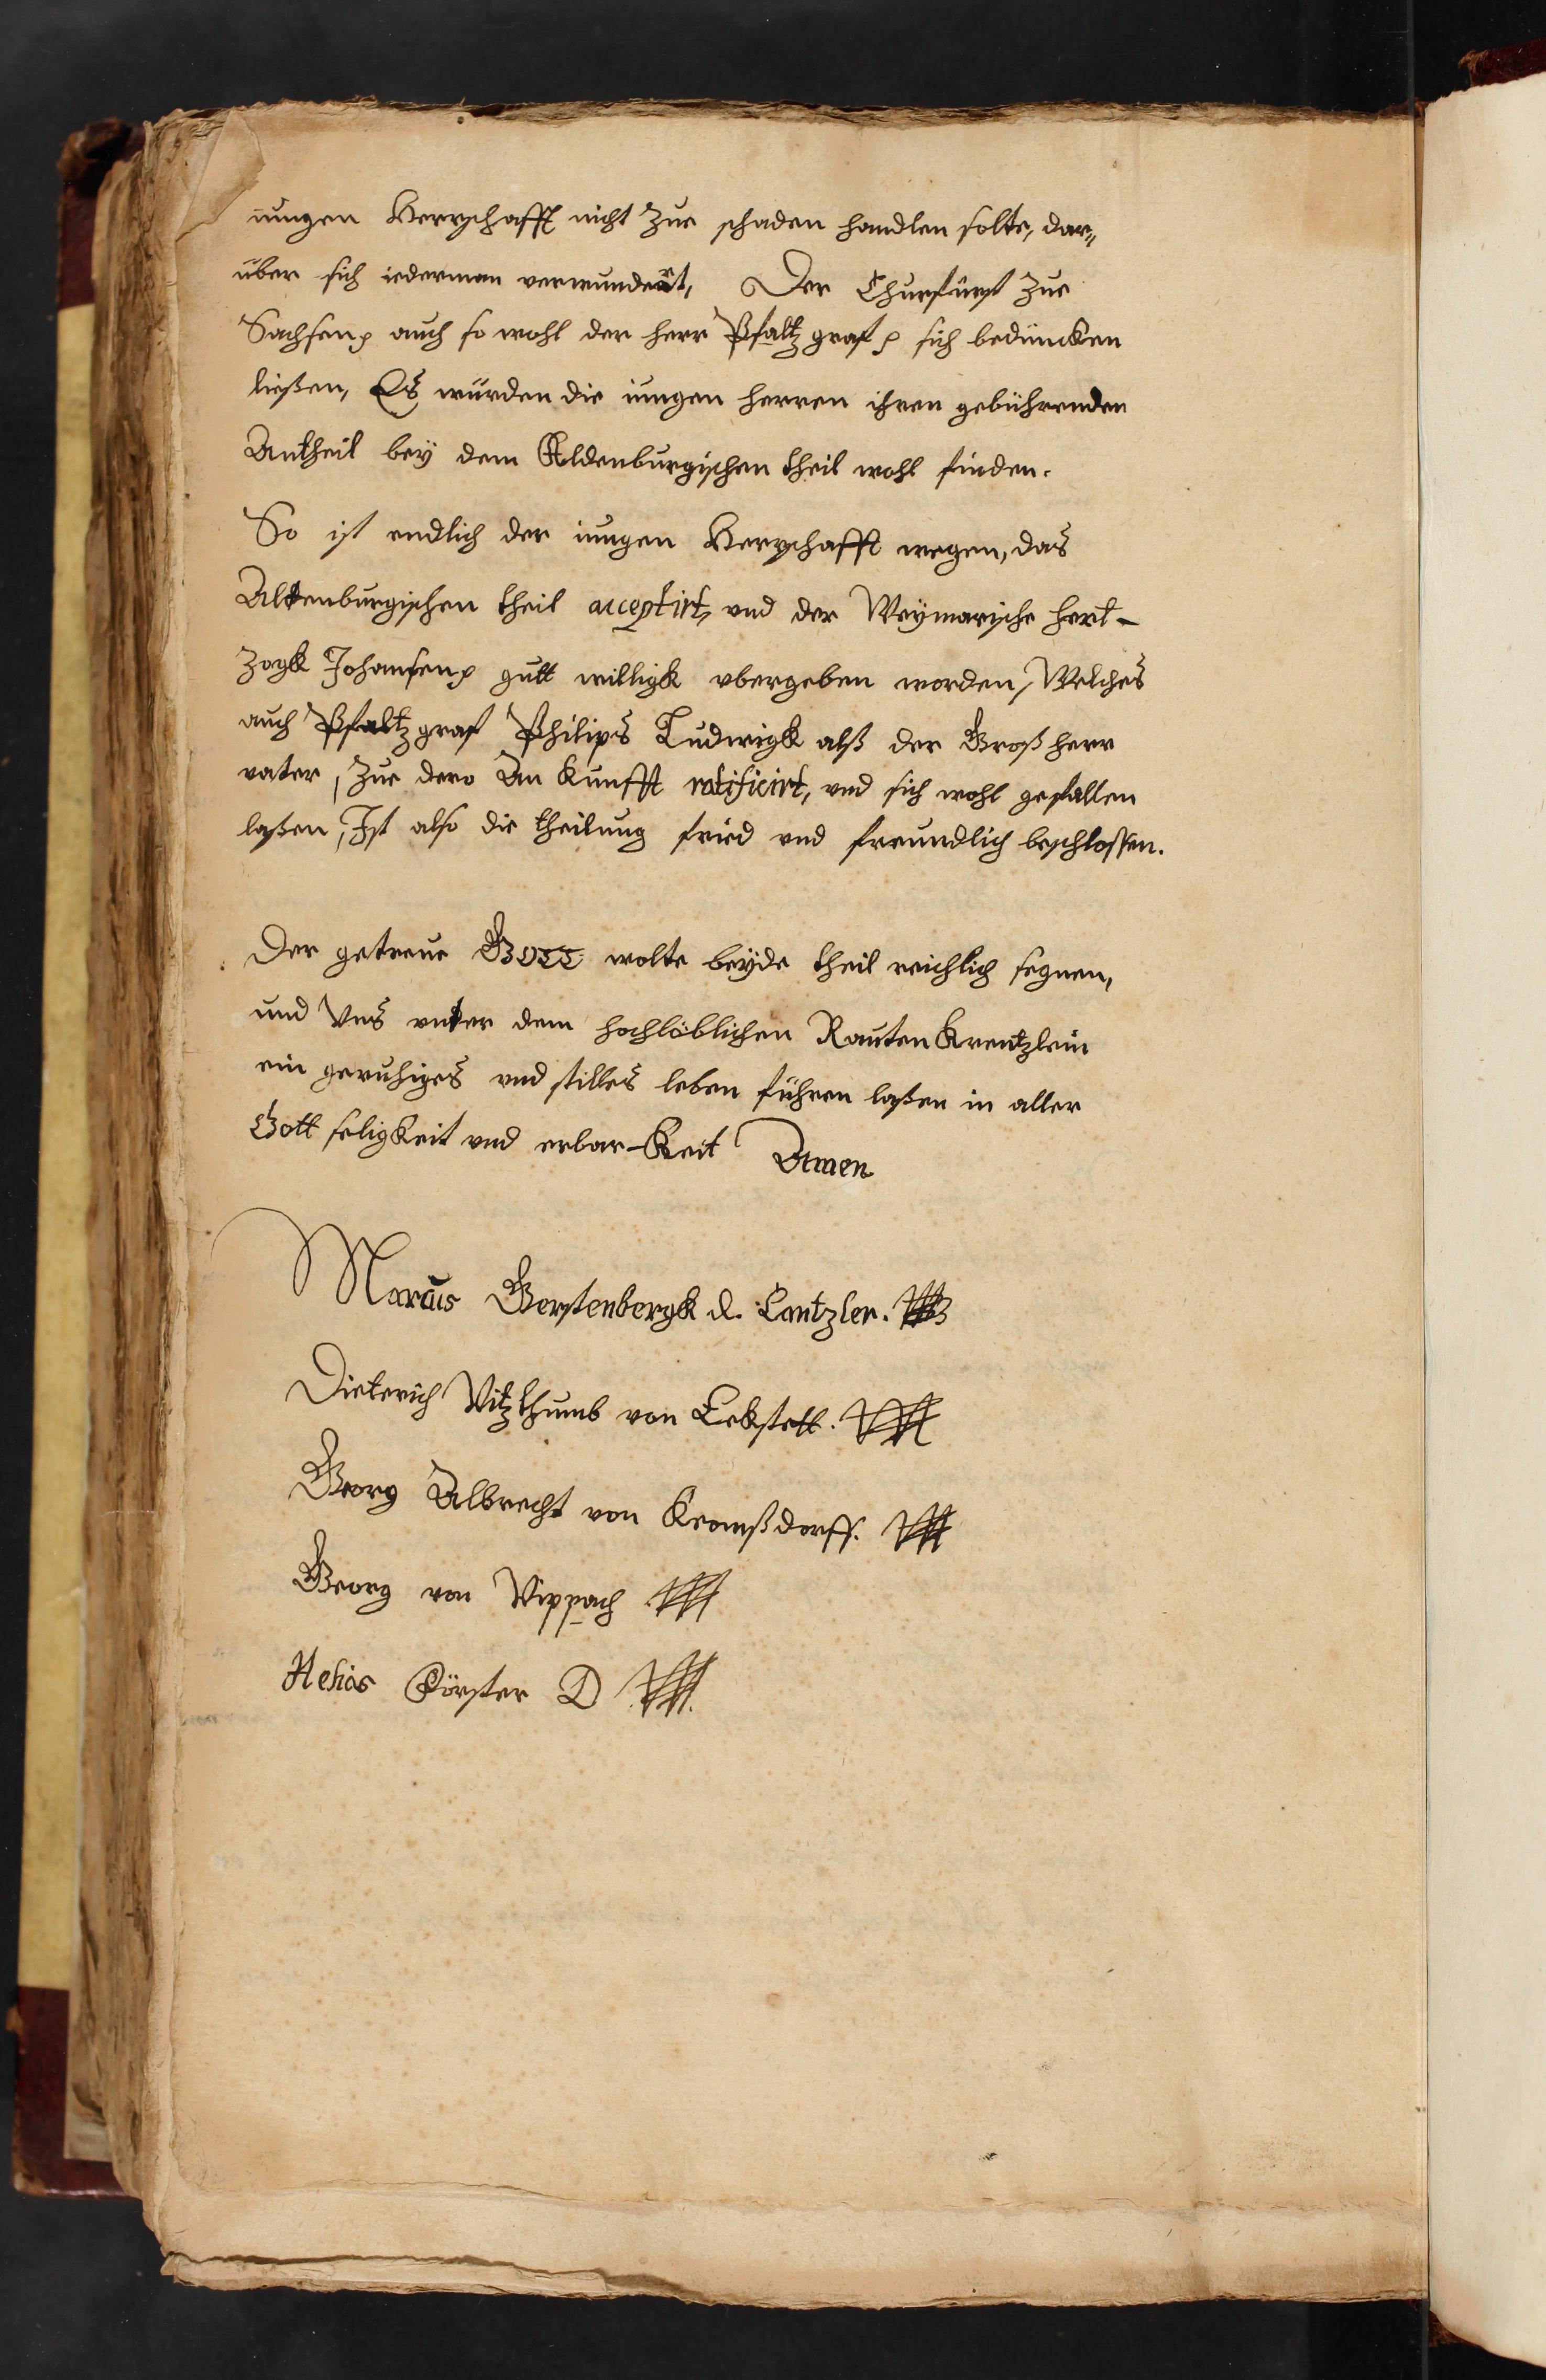 iungen Herrschafft nicht Zue schaden handlen solte, dar„
über sich iederman verwundert, Der Churfürst Zue
Sachsen auch so wohl der herr Pfaltz graf sich bedüncken
ließen, Es würden die iungen herren ihren gebührenden
Antheil beÿ dem Aldenburgischen theil wohl finden.
So ist endlich der iungen Herrschafft wegen, das
Altenburgischen theil acceptirt, vnd der Weÿmarische hert-
Zogk Johansen gutt willigk vbergeben worden, Welches
auch Pfaltz graf Philips Ludwigk alß der Groß herr
vater, Zue dero An kunfft ratificirt, vnd sich wohl gefallen
laßen, Ist also die theilung fried vnd freundlich beschlossen.
Der getreue GOTT wolte beÿde theil reichlich segnen,
und Vns vnter dem hochlöblichen Rauten Krentzlein
ein geruhiges vnd stilles leben führen laßen in aller
Gott seligkeit vnd erbar-Keit Amen
Marcus Gerstenbergk d. Cantzler.
Dieterich Vitzthumb von Eckstett.
Georg Albrecht von Kromßdorff.
Georg von Vippach
Helias Förster D